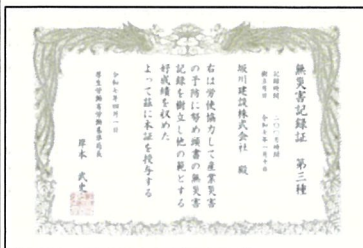 無災害記録証 第三種
記録時間
樹立月日
坂川建設株式会社 殿
右は労使協力して産業災害
の予防に努め頭書の無災害
記録を樹立し他の範とする
好成績を収めた
よって茲に本証を授与する
厚生労働省労働基準局長
岸本 武史